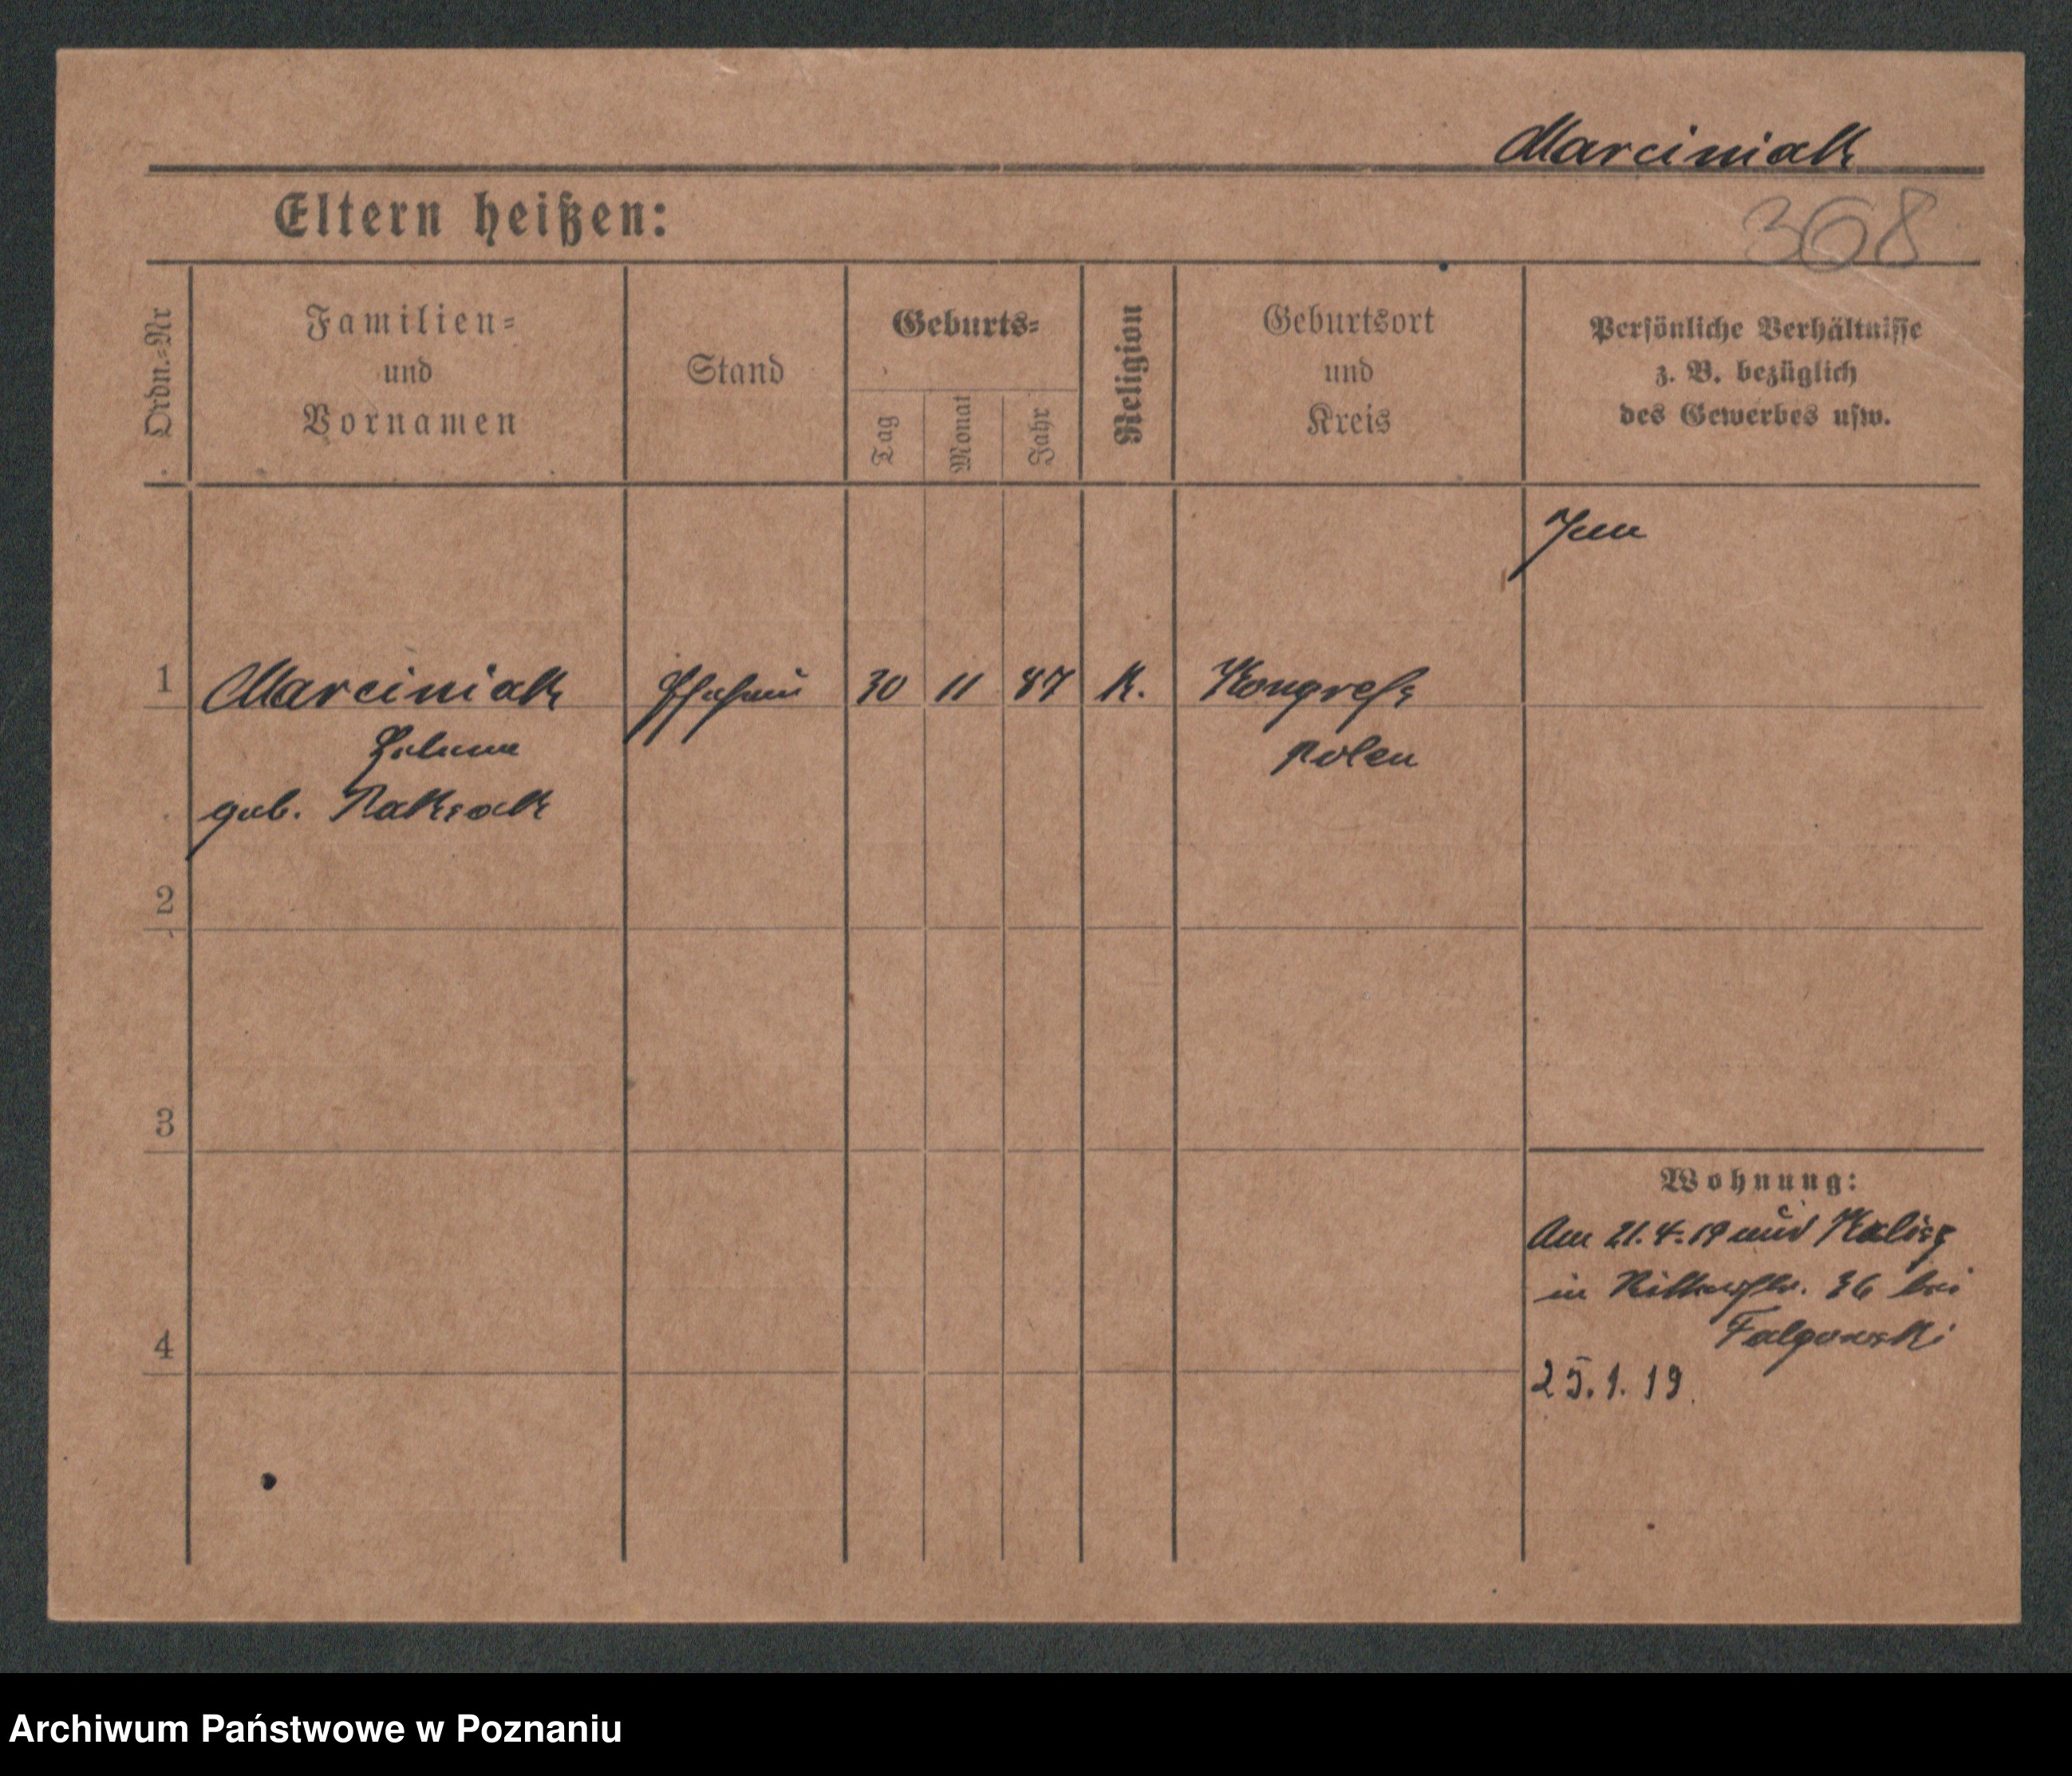 Marciniak
Eltern heißen:
368
Ordn.=Nr
Familien=
und
Vornamen
Stand
Geburts=
Tag
Monat
Jahr
Religion
Geburtsort
und
Kreis
Persönliche Verhältnisse
z. B. bezüglich
des Gewerbes usw.
1 Marciniak Ehefrau 30 11 87 K. Kongreß
Helena Polen
geb.
2
3
4
Wohnung:
Am 21.4.19 Kalisz
in Ritterstr. 36 bei
Falgowski
25.1.19.
Archiwum Państwowe w Poznaniu